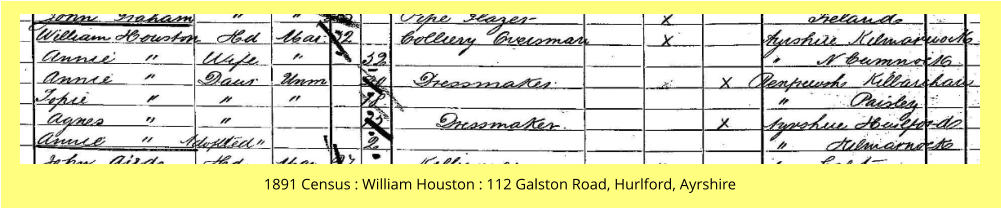 John Graham " " Pipe Glazer x Ireland
William Houston Hd Mar 52 Colliery Oversman x Ayrshire Kilmarnock
Annie " Wife " 52 " N Cumnock
Annie " Daur Unm Dressmaker x Renfrewsh Kilbarchan
Topie " " " " Paisley
Agnes " " Dressmaker x Ayrshire Hurlford
Annie " Adopted " 2 " Kilmarnock
John Hd Mar
1891 Census : William Houston : 112 Galston Road, Hurlford, Ayrshire